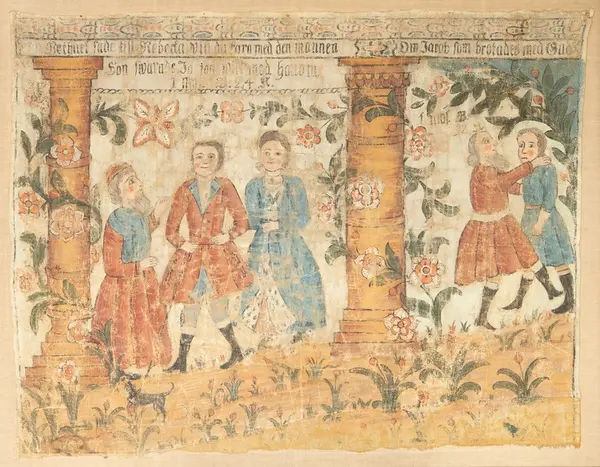 Bethuel sade till Rebecka wil du fara med den mannen
Hon swarade Ja jag wil med honom
1 Mos. 24 K.
Om Jacob som brotades med Gud
1 Mos. B
32